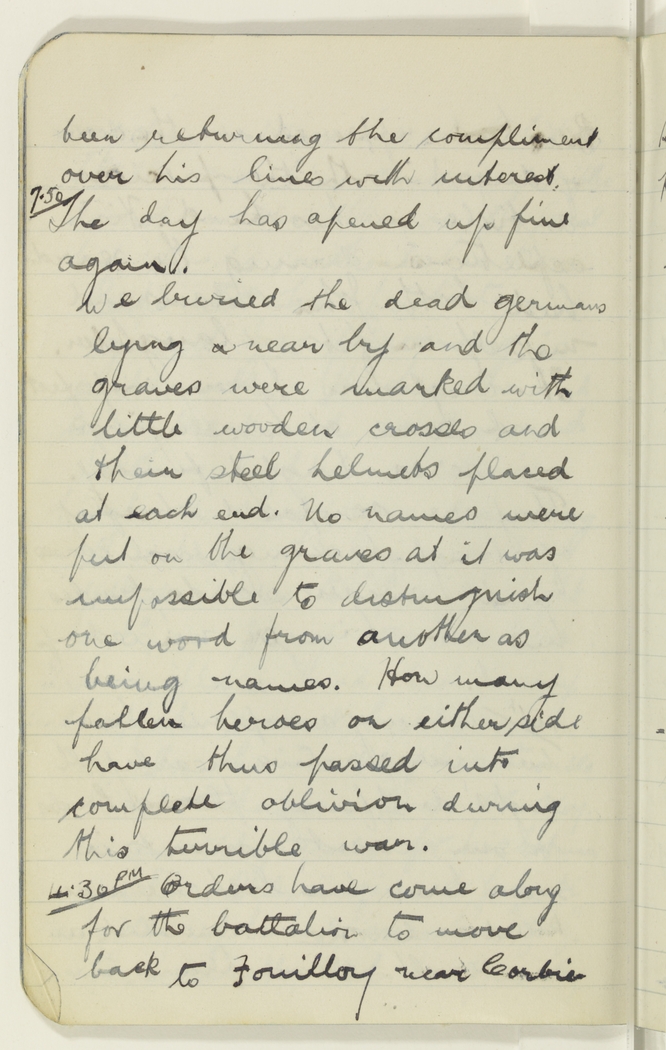 been returning the compliment
over his lines with interest.
7.50
The day has opened up fine
again.
We buried the dead germans
lying a near by and the
graves were marked with
little wooden crosses and
their steel helmets placed
at each end. No names were
put on the graves at it was
impossible to distinguish
one word from another as
being names. How many
fallen heroes on either side
have thus passed into
complete oblivion during
this terrible war.
4.30 PM Orders have come along
for the battalion to move
back to Fouilloy near Corbie